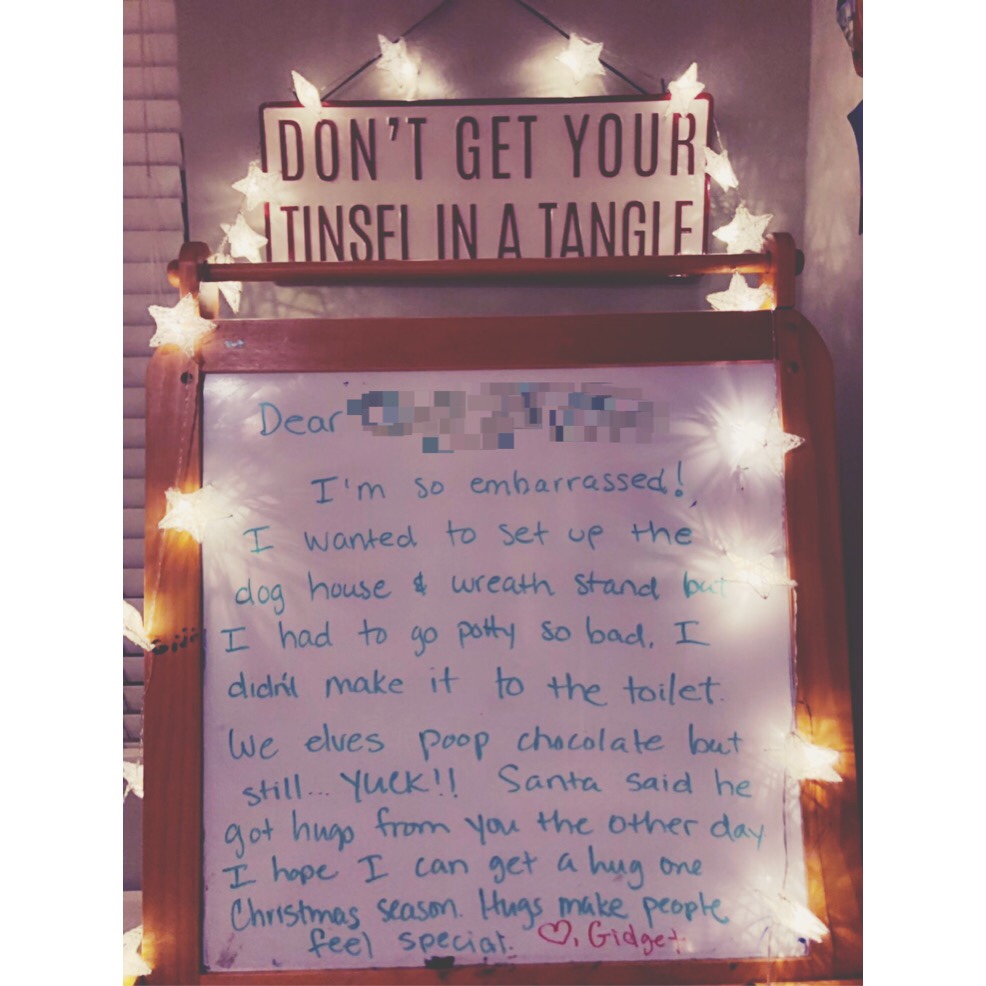 DON'T GET YOUR
TINSEL IN A TANGLE
Dear
I'm so embarrassed!
I wanted to set up the
dog house & wreath stand but
I had to go potty so bad, I
didn't make it to the toilet.
We elves poop chocolate but
still... YUCK!! Santa said he
got hugs from you the other day
I hope I can get a hug one
Christmas season. Hugs make people
feel special. ♡, Gidget